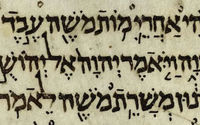 ויהי אחרי מות משה עבד
יהוה ויאמר יהוה אל יהוש
נון משרת משה לאמר